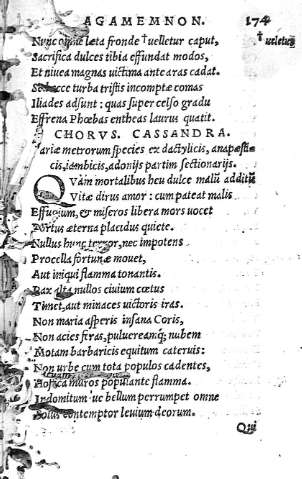 AGAMEMNON. 174
Nunc omne læta fronde †uelletur caput, † ueletur
Sacrifica dulces tibia effundat modos,
Et niuea magnas uictima ante aras cadat.
Sed ecce turba tristis incomptæ comas
Iliades adsunt: quas super celso gradu
Effrena Phœbas entheas laurus quatit.
CHORVS. CASSANDRA.
Variæ metrorum species ex dactylicis, anapæsti-
cis, iambicis, adonijs partim sectionarijs.
QVàm mortalibus heu dulce malũ additũ
Vitæ dirus amor: cum pateat malis
Effugium, & miseros libera mors uocet
Portus æterna placidus quiete.
Nullus hunc terror, nec impotens
Procella fortunæ mouet,
Aut iniqui flamma tonantis.
Pax alta nullos ciuium cœtus
Timet, aut minaces uictoris iras.
Non maria asperis insana Coris,
Non acies firas, puluereamq; nubem
Motam barbaricis equitum cateruis:
Non urbe cum tota populos cadentes,
Hostica muros populante flamma.
Indomitum ue bellum perrumpet omne
Solus contemptor leuium deorum.
Q iij